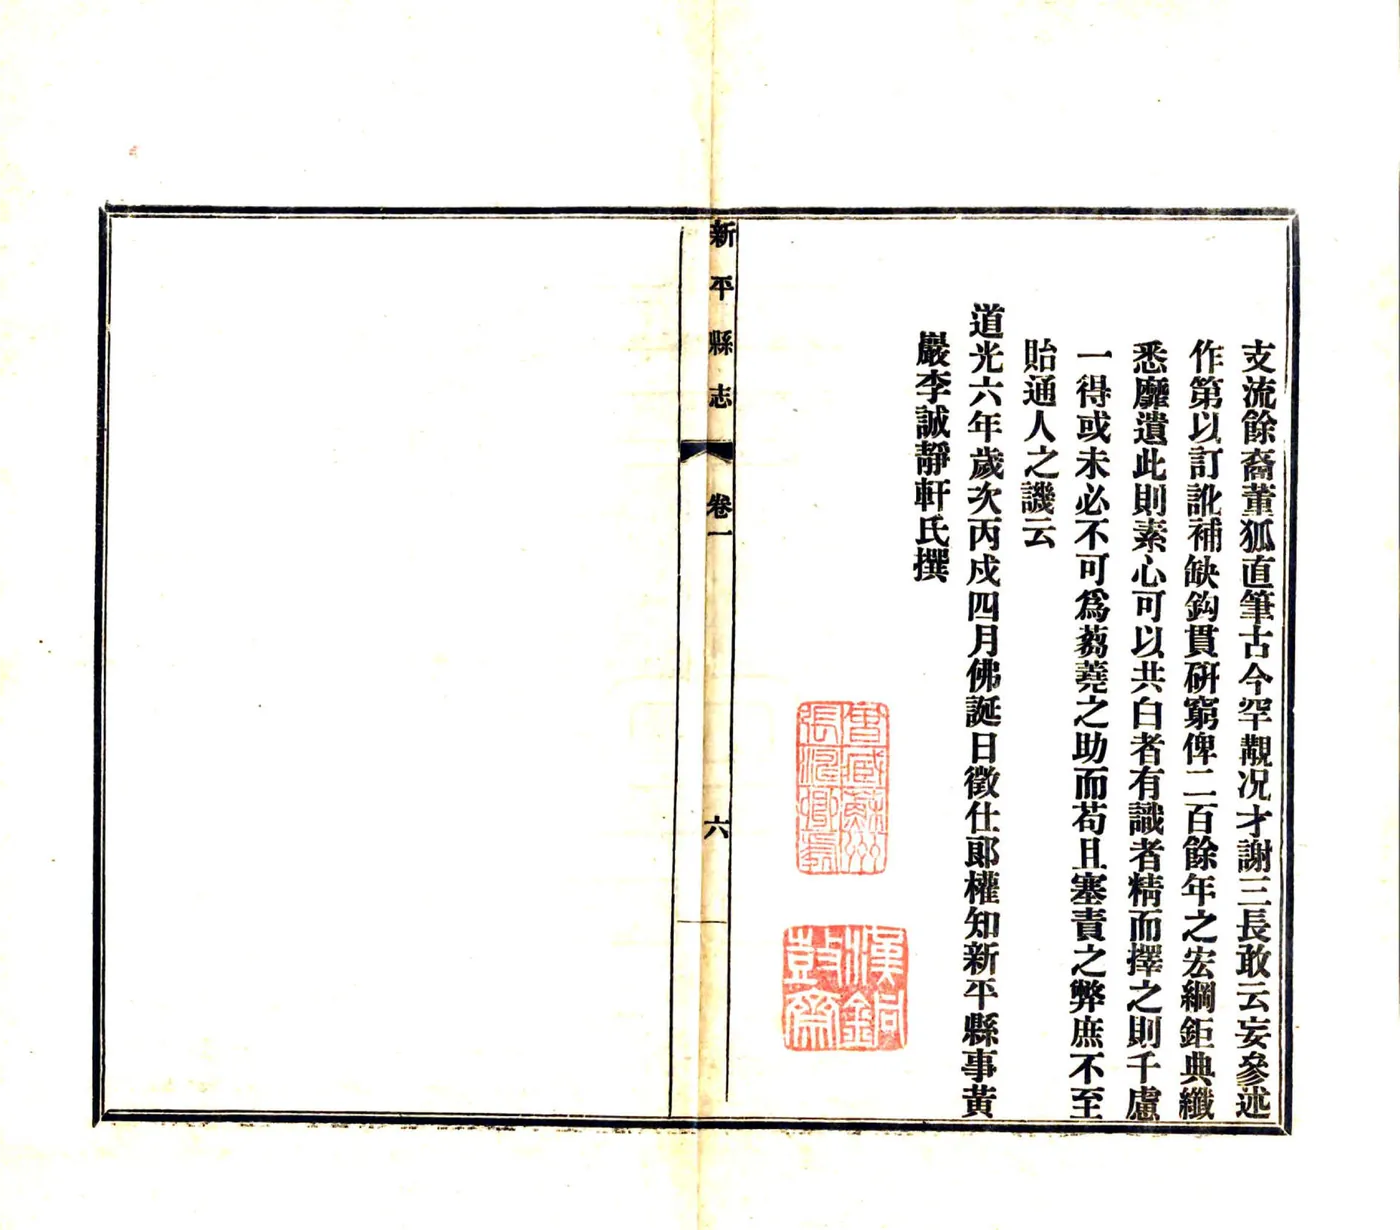 支流餘裔董狐直筆古今罕觀况才謝三長敢云妄參述
作第以訂訛補缺鈎貫硏窮俾二百餘年之宏綱鉅典纖
悉靡遺此則素心可以共白者有識者精而擇之則千慮
一得或未必不可爲蒭蕘之助而苟且塞責之弊庶不至
貽通人之譏云
道光六年歲次丙戍四月佛誕日徵仕郞權知新平縣事黃
巖李誠靜軒氏撰
曾藏蘇州
張滬卿處
漢銅
鼓齋
新平縣志
卷一
六